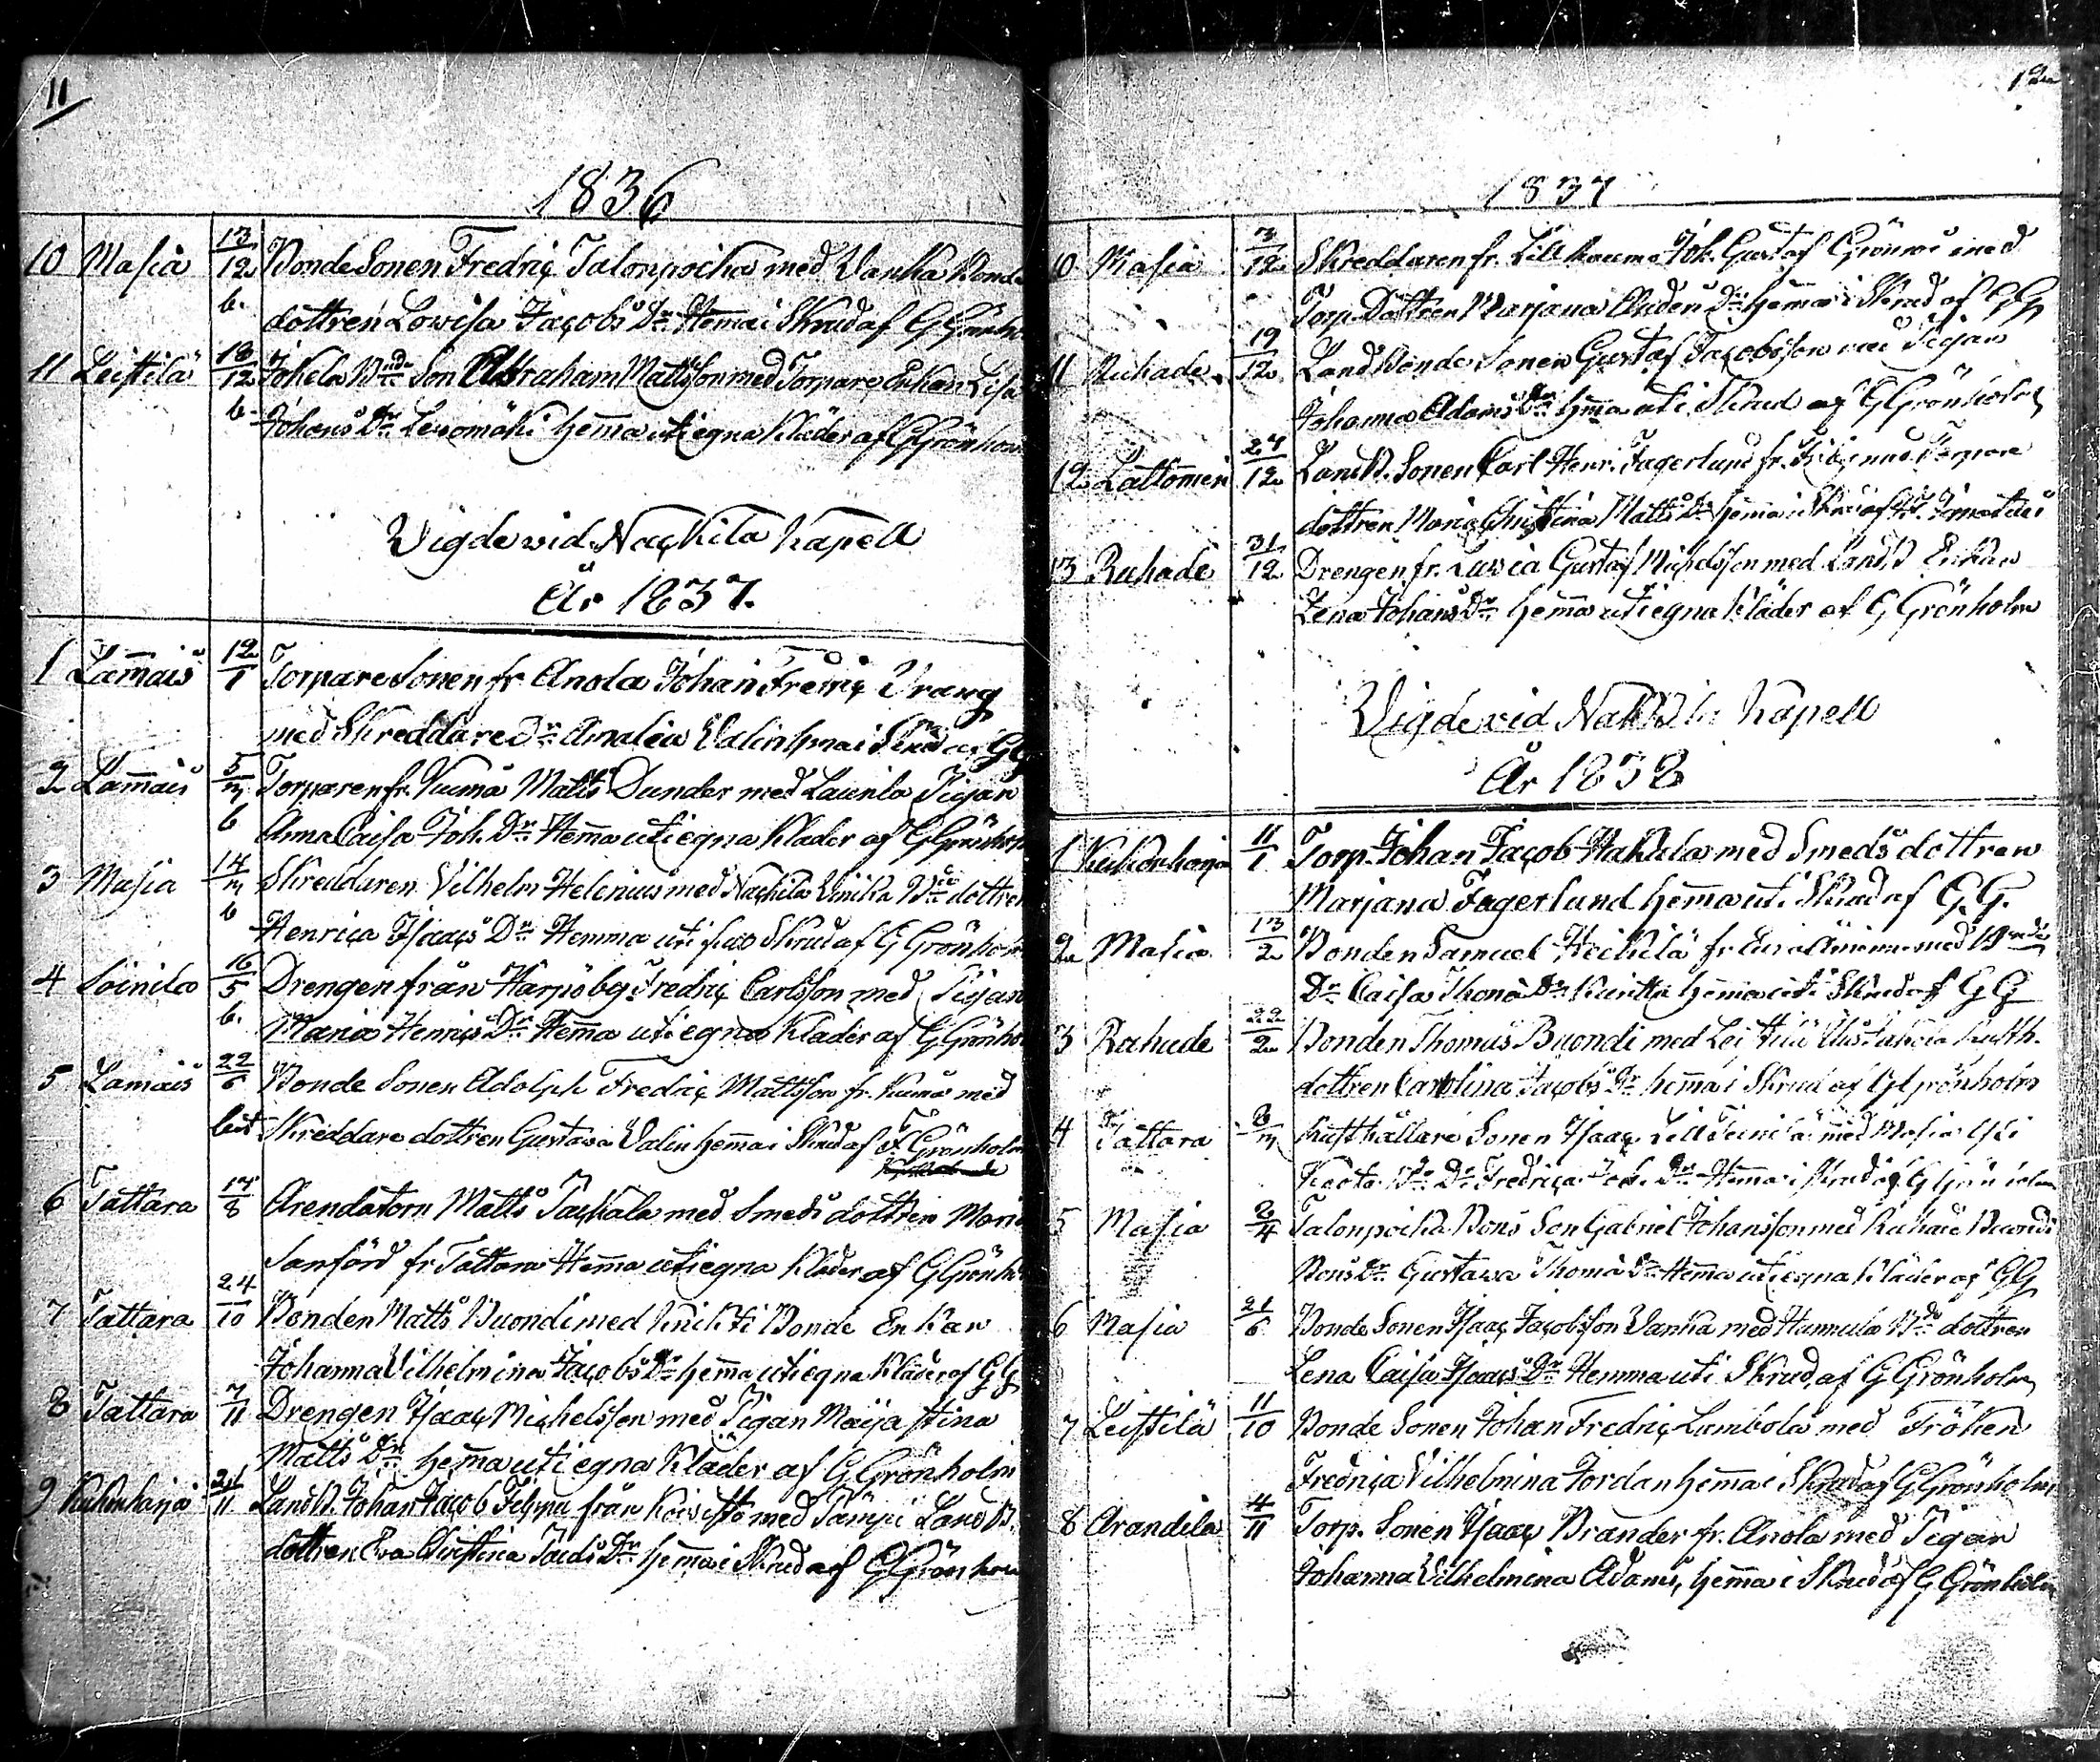 11
1836
10 Masia 13/12 BondeSonen Fredriç Talonpoika med Vanha Bonde
b. dottren Lowisa Jaçobs Dr Hemma i Skrud af G Grönho
11 Leistilä 13/12 Jokela Bnde Son Abraham Mattsson med Torpare Enkan Lisa
b. Johans Dr Lewomäki hemma uti egna Kläder af G Grönhom
Vigde vid Naçkila Kapell
År 1837.
1 Lammais 12/1 Torpare Sonen fr. Anola Johan Fredriç Vrang
med Skreddare Dr Amalia Valin hema i Skrud af GG
2 Lammais 5/3 Torparen fr. Kumå Matts Dunder med Launila Pigan
b Anna Caisa Joh. Dr Hemma uti egna Kläder af G Grönholm
3 Masia 14/3 Skreddaren Vilhelm Helenius med Naçkila dottren
b Henriça Isaaçs Dr Hemma uti Skrud af G Grönholm
4 Soinila 16/5 Drengen från Harjobg. Fredriç Carlsson med Pigan
b. Maria Henriçs Dr Hemma uti egna Kläder af G Grönho
5 Lamais 22/6 Bonde Sonen Adolph Fredriç Mattsson fr. Kumå med
Skreddare dottren Gustava Valin hemma i Skrud af F. Grönholm
6 Tattara 17/8 Arendatorn Matts Taçkala med Smeds dottren Maria
Sanförd fr Tattara Hemma uti egna Kläder af G Grönho
7 Tattara 24/10 Bonden Matts Buondi med Knihti Bonde Enkan
Johanna Vilhelmina Jaçobs Dr hemma uti egna Kläder af GG
8 Tattara 7/11 Drengen Isaaç Miçhelsson med Pigan Maija Stina
Matts Dr hemma uti egna Kläder af G Grönholm
9 Kukonharja 21/11 LandB. Johan Jaçob från Koivisto med LandB.
dottren Eva Christina Dr hemma i Skrud af G Grönhom
12
1837
10 Masia 3/12 Skreddaren fr. Lill Kaumo Joh. Gustaf Grönroos med
Torp. Dottren Marjana Anders Dr hemma i Skrud af GG
11 Ruhade 19/12 Land Bonde Sonen Gustaf Jaçobsson med Pigan
Johanna Adams Dr hemma uti Skrud af G Grönholm
12 Lattomeri 27/12 LandB. Sonen Carl Henr. Fagerlund fr. med Torpare
dottren Maria Christina Matts Dr hemma i Skrud af
13 Ruhade 31/12 Drengen fr. Luvia Gustaf Miçhelsson med LandB Enkan
Lena Johans Dr hemma uti egna Kläder af G Grönholm
Vigde vid Nakkila Kapell
År 1838
1 Kukonharja 11/1 Torp. Johan Jaçob Hakala med Smeds dottren
Marjana Fagerlund hemma uti Skrud af G.G.
2 Masia 13/2 Bonden Samuel Heikkilä fr. med Bonde
Dr Caisa Thoma Dr hemma uti Skrud af GG
3 Ruhade 22/2 Bonden Thomas Buondi med
dottren Carolina Jaçobs Dr hemma i Skrud af G Grönholm
4 Tattara 2/3 Rusthållare Sonen Isaaç Lill med Masia
Dr Fredriça Dr Hemma i Skrud af G Grönholm
5 Masia 2/4 Talonpoika Bons Son Gabriel Johansson med Ruhade Buondi
Bons Dr Gustava Thoma Dr Hemma uti egna Kläder af GG
6 Masia 21/6 Bonde Sonen Isaaç Jaçobsson Vanha med Hannula Bde dottren
Lena Caisa Isaaçs Dr Hemma uti Skrud af G Grönholm
7 Leistilä 11/10 Bonde Sonen Johan Fredriç Lambola med Fröken
Fredriça Vilhelmina Jordan hemma i Skrud af G Grönholm
8 Arandila 4/11 Torp. Sonen Isaaç Brander fr. Anola med Pigan
Johanna Vilhelmina Adams, hemma i Skrud af G Grönholm